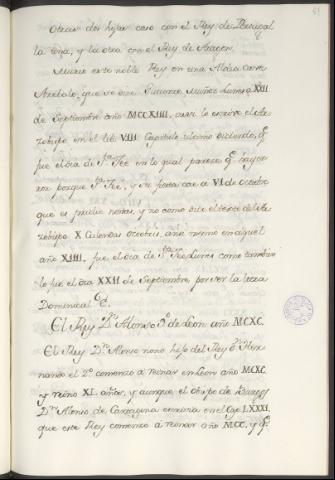 Otras dos hijas casó con el Rey de Portugal
la una, y la otra con el Rey de Aragon.
Murio este noble Rey en una Aldea cerca
Arebalo, que se dice Gutierre Muñoz Lunes a XXII
de Septiembre año MCCXIIII, assi lo escrive el Ar-
zobispo en el lib. VIII Capitulo ultimo diciendo, q̃
fue el dia de S.ta Fee en lo qual parece q̃ hay er-
ror porque S.ta Fee, y su fiesta cae a VI de octubre
que es pridie nonas, y no como dice el texto del Ar-
zobispo X Calendas Octobris, asi mesmo en aquel
año XIIII, fue el dia de S.ta Fee Lunes como tambien
lo fue el dia XXII de Septiembre, por ser la letra
Dominical E.
El Rey D.n Alonso 9.º de Leon año MCXC.
El Rey D.n Alonso nono hijo del Rey D.n Her-
nando el 2.º comenzó a reinar en Leon año MCXC
y reinó XL años, y aunque el obispo de Burgos
D.n Alonso de Cartagena escriva en el Cap. LXXXI,
que este Rey comenzó a reinar año MCC, y q̃